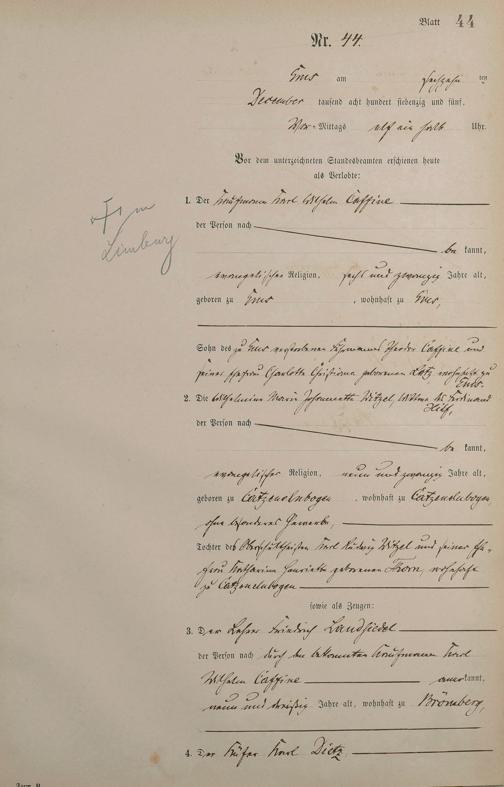 Blatt 44
Nr. 44.
Ems am sechzehn ten
December tausend acht hundert siebenzig und fünf,
Vor-Mittags elf ein halb Uhr.
Vor dem unterzeichneten Standesbeamten erschienen heute
als Verlobte:
1. Der Kaufmann Karl Wilhelm Caffine
der Person nach
be kannt,
evangelischer Religion, sechs und zwanzig Jahre alt,
geboren zu Ems, wohnhaft zu Ems,
Sohn des zu Ems verstorbenen Theodor Caffine und
seiner Ehefrau Charlotte Christiane geborenen Lotz, wohnhaft zu
Ems.
2. Die Wilhelmine Marie Johannette Witzel, Wittwe des Ferdinand
Hilf,
der Person nach
be kannt,
evangelischer Religion, neun und zwanzig Jahre alt,
geboren zu Catzenelnbogen, wohnhaft zu Catzenelnbogen,
ohne besonderes Gewerbe,
Tochter des Oberschultheisen Karl Ludwig Witzel und seiner Ehe-
frau Katharina Henriette geborenen Thorn, wohnhaft
zu Catzenelnbogen
sowie als Zeugen:
3. Der Lehrer Friedrich Landsiedel
der Person nach durch den bekannten Kaufmann Karl
Wilhelm Caffine anerkannt,
neun und dreißig Jahre alt, wohnhaft zu
4. Der Küfer Karl Dietz
in
Limburg